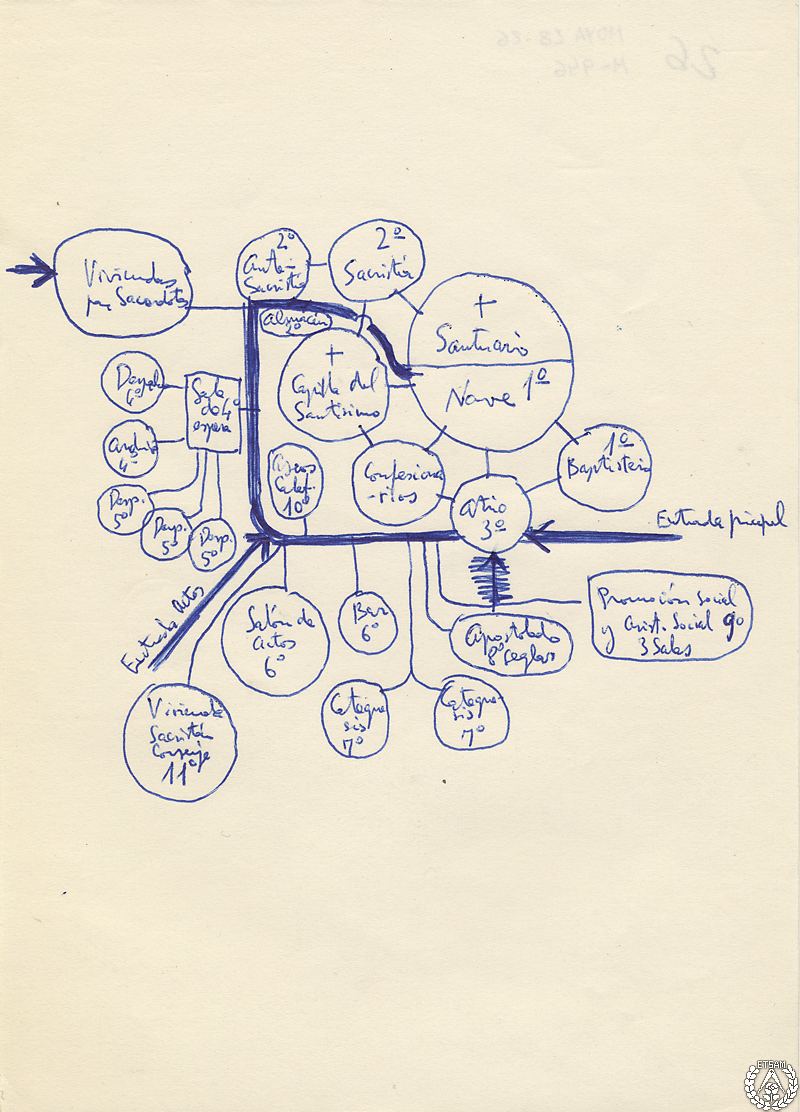 2º
Sacristía
2º
Ante-
Sacristía
Viviendas
para Sacerdotes
Almacén
2º
+
Santuario
Nave 1º
+
Capilla del
Santísimo
Despacho
4º
Sala
de 4º
espera
Archivo
4º
Desp.
5º
Desp.
5º
Desp.
5º
Aseos
Calef.
10º
Confesiona
-rios
1º
Baptisterio
Atrio
3º
Entrada principal
Entrada Actos
Salón de
actos
6º
Bar
6º
Apostolado
8º seglar
Promoción Social
y Asist. Social 9º
3 Salas
Vivienda
Sacristán
Conserje
11º
Cateque
sis
7º
Cateque-
sis
7º
MOYA LB-86
M-946
26
ETSAM